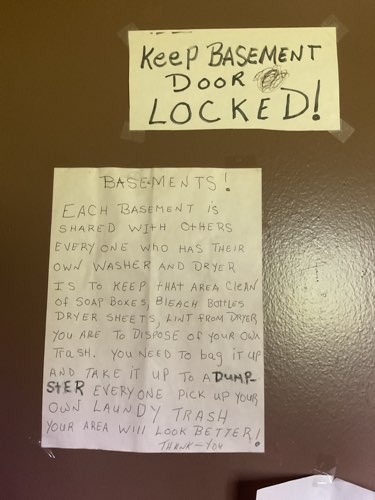 KEEP BASEMENT
DOOR
LOCKED!
BASEMENTS!
EACH BASEMENT is
SHARED WITH OTHERS
EVERY ONE WHO HAS THEIR
OWN WASHER AND DRYER
IS TO KEEP THAT AREA CLEAN
OF SOAP BOXES, BLEACH BOTTLES
DRYER SHEETS, LINT FROM DRYER
YOU ARE TO DISPOSE OF YOUR OWN
TRASH. YOU NEED TO bag iT UP
AND TAKE IT UP TO A DUMP-
STER EVERYONE PICK UP YOUR
OWN LAUNDY TRASH
YOUR AREA WILL LOOK BETTER!
THANK-YOU